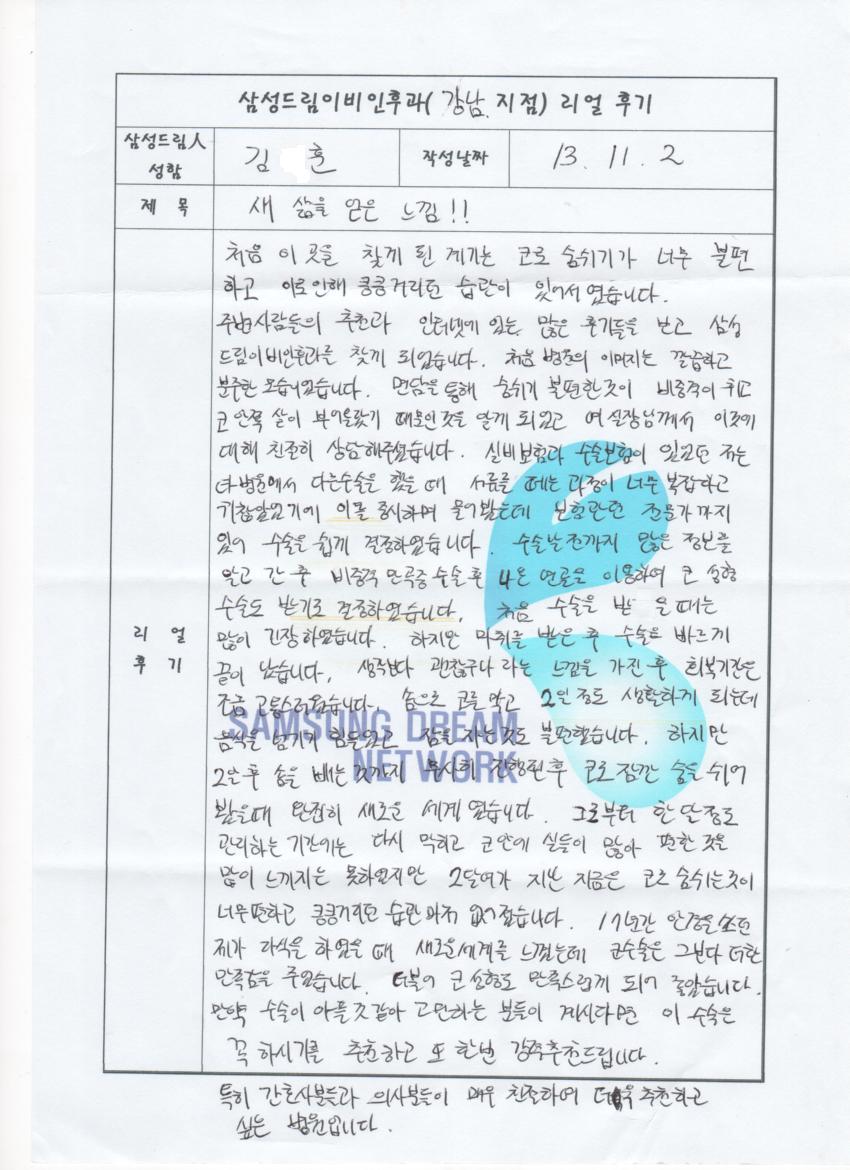 삼성드림이비인후과( 강남 지점) 리얼 후기
삼성드림人 성함
김 훈
작성날짜
13. 11. 2
제 목
새 삶을 얻은 느낌!!
리 얼 후 기
처음 이 곳을 찾게 된 계기는 코로 숨쉬기가 너무 불편
하고 이로인해 킁킁거리던 습관이 있어서 였습니다.
주변사람들의 추천과 인터넷에 있는 많은 후기들을 보고 삼성
드림이비인후과를 찾게 되었습니다. 처음 병원의 이미지는 깔끔하고
분주한 모습이었습니다. 면담을 통해 숨쉬기 불편한것이 비중격이 휘고
코 안쪽 살이 부어올랐기 때문인것을 알게 되었고 여실장님께서 이것에
대해 친절히 상담해주셨습니다. 실비보험과 수술보험이 있었던 저는
타병원에서 다른수술을 했을 때 서류를 떼는 과정이 너무 복잡하고
귀찮았었기에 이를 중시하며 물어봤는데 보험관련 전문가까지
있어 수술을 쉽게 결정하였습니다. 수술날 전까지 많은 정보를
알고 간 후 비중격 만곡증 수술 후 나온 연골을 이용하여 코 성형
수술도 받기로 결정하였습니다. 처음 수술을 받 을 때는
많이 긴장하였습니다. 하지만 마취를 받은 후 수술은 바르게
끝이 났습니다. 생각보다 괜찮구나 라는 느낌을 가진 후 회복기간은
조금 고통스러웠습니다. 솜으로 코를 막고 2일 정도 생활하게 되는데
음식을 넘기기 힘들었고 잠을 자는것도 불편했습니다. 하지만
2일 후 솜을 빼는 것까지 무사히 진행된 후 코로 잠깐 숨을 쉬어
봤을때 완전히 새로운 세계였습니다. 그로부터 한 달 정도
관리하는 기간에는 다시 막히고 코안에 실들이 많아 편한 것을
많이 느끼지는 못하였지만 2달여가 지난 지금은 코로 숨쉬는것이
너무편하고 킁킁거리던 습관마저 없어졌습니다. 17년간 안경을 쓰던
제가 라식을 하였을 때 새로운세계를 느꼈는데 코수술은 그보다 더한
만족감을 주었습니다. 더불어 코 성형도 만족스럽게 되어 좋았습니다.
만약 수술이 아플것같아 고민하는 분들이 계시다면 이 수술은
꼭 하시기를 추천하고 또 한번 강력추천드립니다.
특히 간호사분들과 의사분들이 매우 친절하여 더욱 추천하고
싶은 병원입니다.
SAMSUNG DREAM
NETWORK